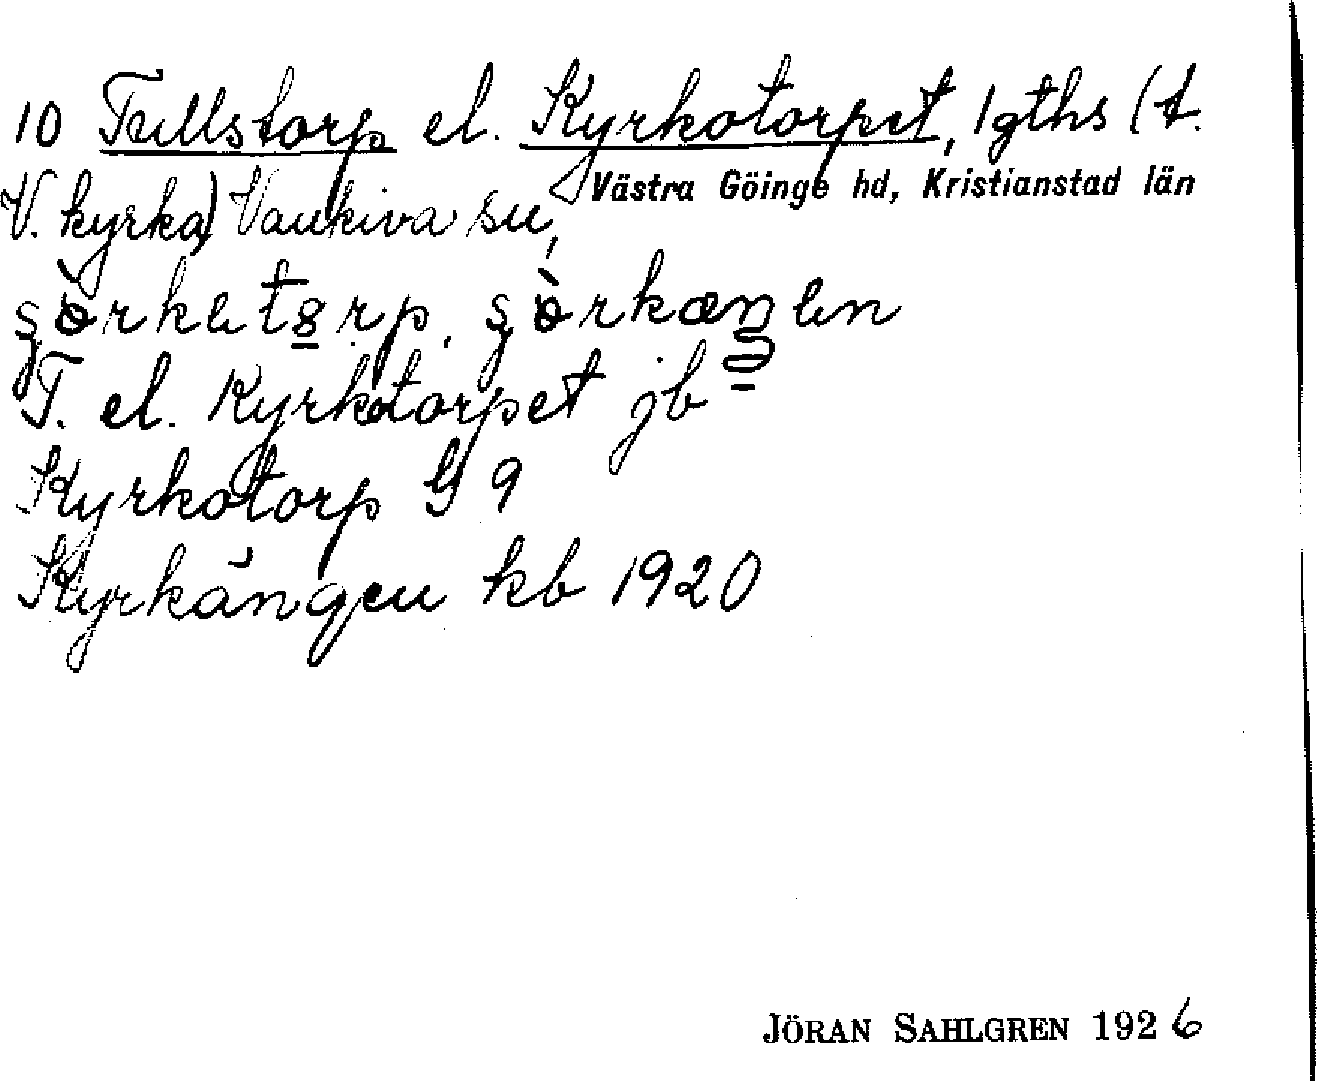 10 Tullstorp el. Kyrkotorpet, lgths (t.
V. kyrka) Vankiva sn, Västra Göinge hd, Kristianstad län
T. el. Kyrkotorpet jb
Kyrkotorp G 9
Kyrkängen kb 1920
JÖRAN SAHLGREN 1926